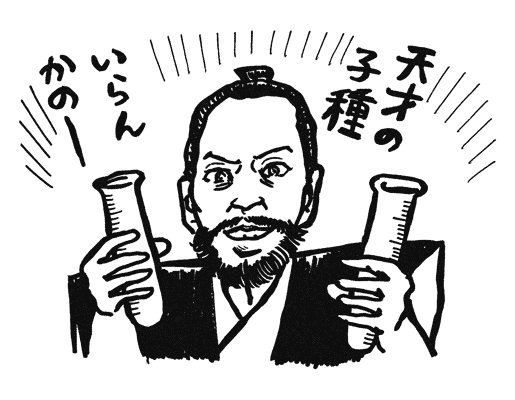 天才の
子種
いらん
かのー